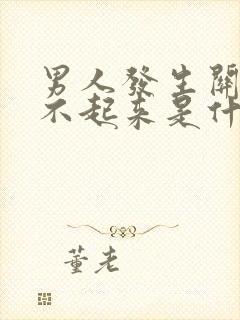 男人發生關
不起來是什
董老